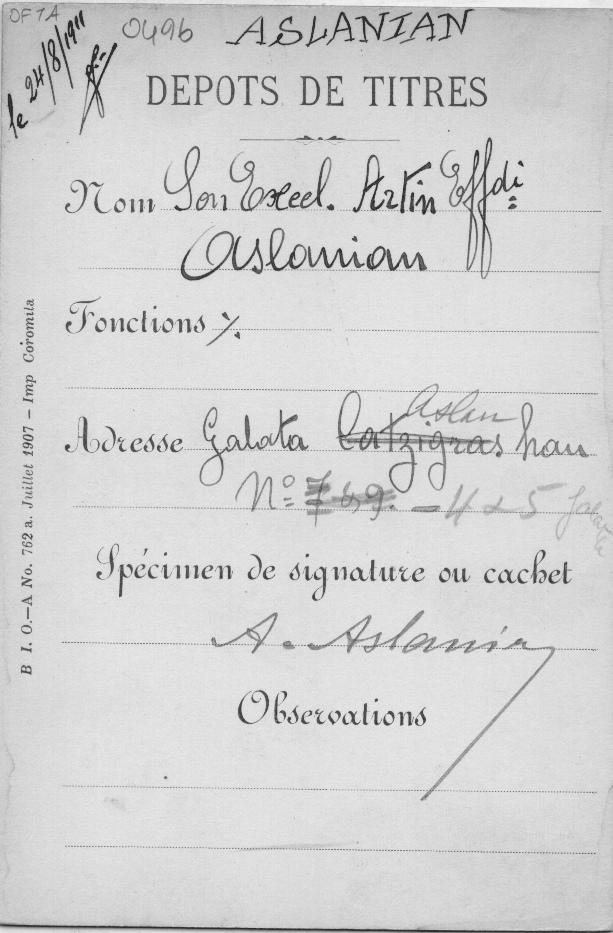 OFTA
0496 ASLANIAN
le 24/8/1911
DEPOTS DE TITRES
Nom Son Excel. Artin Effdi
Aslanian
Fonctions %.
Aslan
Adresse Galata Catzigras han
No: 7 & 9. - 4 & 5 Galata
Spécimen de signature ou cachet
A. Aslanian
Observations
B I. O.—A No. 762 a. Juillet 1907 — Imp Coromila